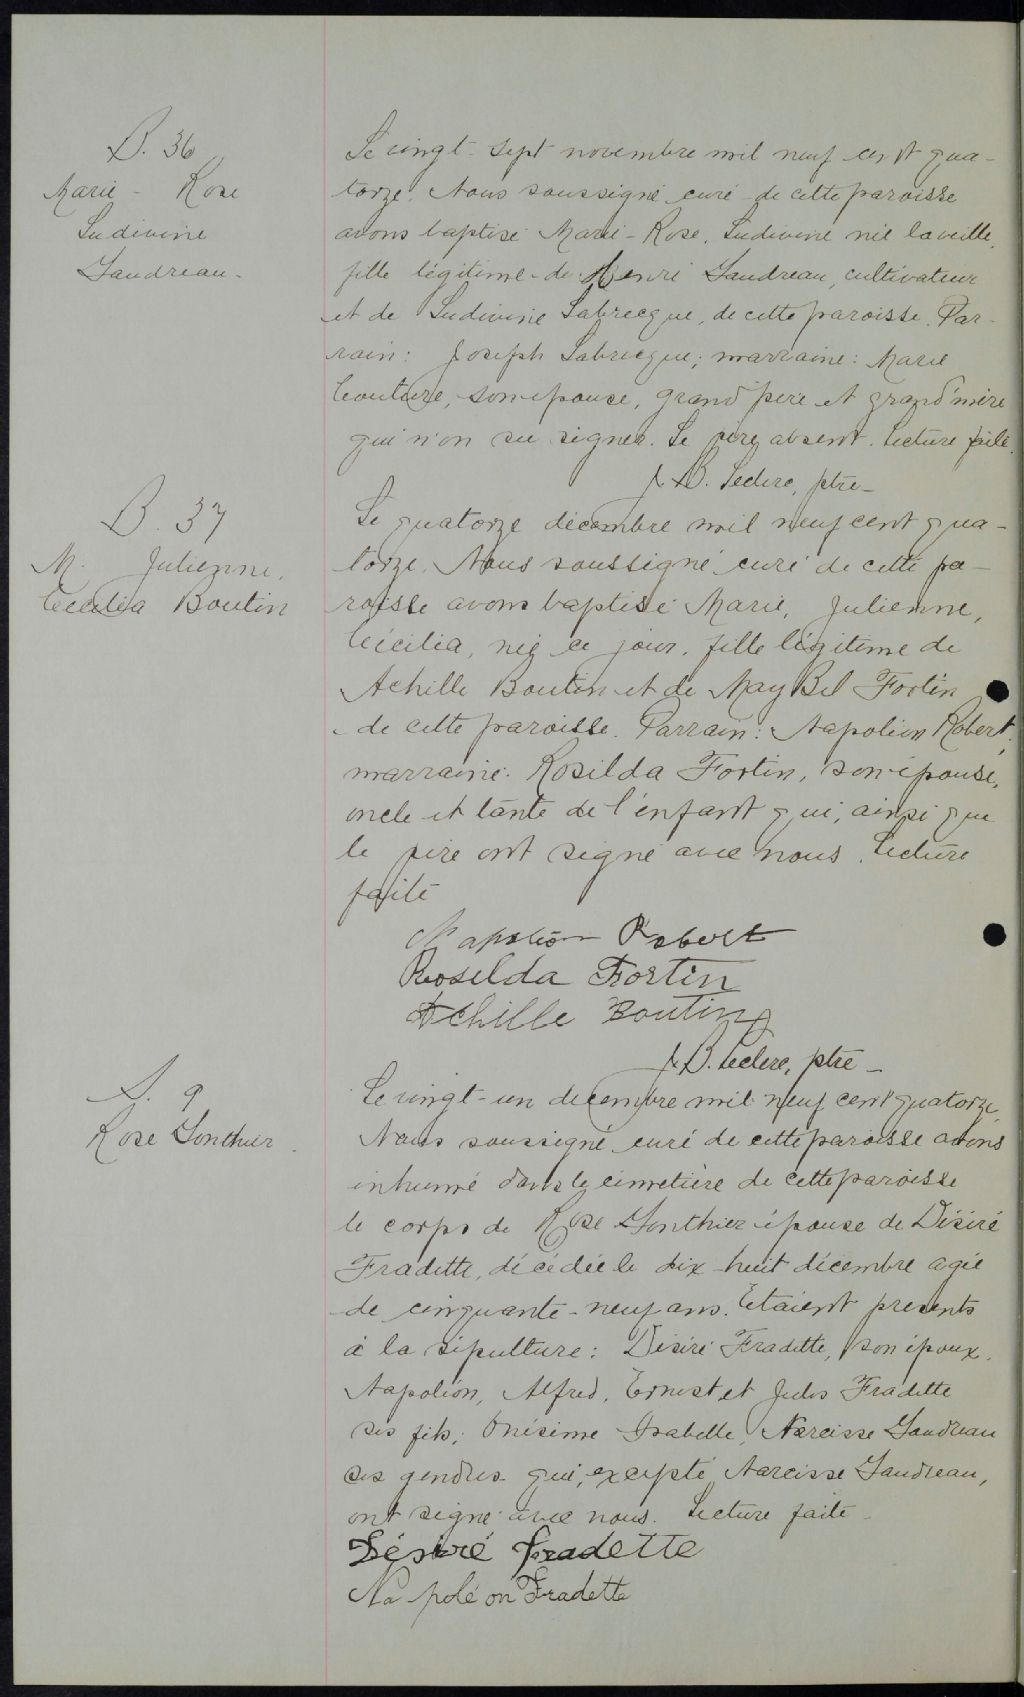 B. 36
Marie - Rose
Ludivine
Gaudreau.
Le vingt-sept novembre mil neuf cent qua-
torze. Nous soussigné curé de cette paroisse
avons baptisé Marie-Rose, Ludivine née la veille,
fille légitime de Henri Gaudreau, cultivateur
et de Ludivine Labrecque, de cette paroisse. Par-
rain: Joseph Labrecque; marraine: Marie
Couture, son épouse, grand'père et grand'mère
qui n'on su signer. Le père absent. Lecture faite.
J. B. Leclerc, ptre-
B. 37
M. Julienne,
Cécilia Boutin
Le quatorze décembre mil neuf cent qua-
torze. Nous soussigné curé de cette pa-
roisse avons baptisé Marie, Julienne,
Cécilia, née ce jour, fille légitime de
Achille Boutin et de May Bel Fortin
de cette paroisse. Parrain: Napoléon Robert;
marraine: Rosilda Fortin, son épouse,
oncle et tante de l'enfant qui, ainsi que
le père ont signé avec nous. Lecture
faite
Napoléon Robert
Roselda Fortin
Achille Boutin
J. B. Leclerc, ptre-
S. 9
Rose Gonthier.
Le vingt-un décembre mil neuf cent quatorze,
Nous soussigné curé de cette paroisse avons
inhumé dans le cimetière de cette paroisse
le corps de Rose Gonthier épouse de Désiré
Fradette, décédée le dix-huit décembre agée
de cinquante-neuf ans. Etaient presents
à la sépulture: Désiré Fradette, son époux,
Napoléon, Alfred, Ernest et Jules Fradette
ses fils; Onésime Isabelle, Narcisse Gaudreau
ses gendres qui, excepté Narcisse Gaudreau,
ont signé avec nous. Lecture faite-
Désiré fradette
Napoléon Fradette